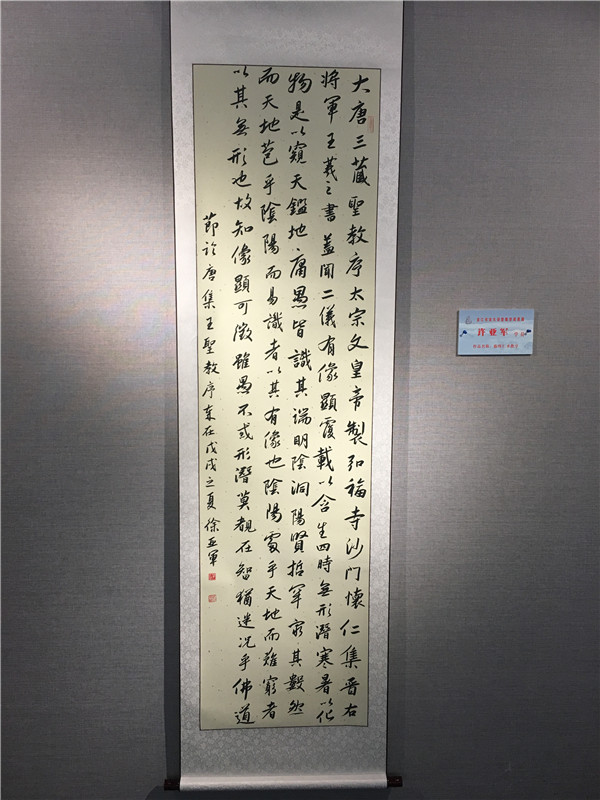 大唐三藏聖教序太宗文皇帝製弘福寺沙門懷仁集晉右
将軍王羲之書蓋聞二儀有像顯覆載以含生四時無形潛寒暑以化
物是以窺天鑑地庸愚皆識其端明陰洞陽賢哲罕窮其數然
而天地苞乎陰陽而易識者以其有像也陰陽處乎天地而難窮者
以其無形也故知像顯可徵雖愚不或形潛莫覩在智猶迷況乎佛道
節於唐集王聖教序歲在戊戌之夏徐亚軍
许亚军